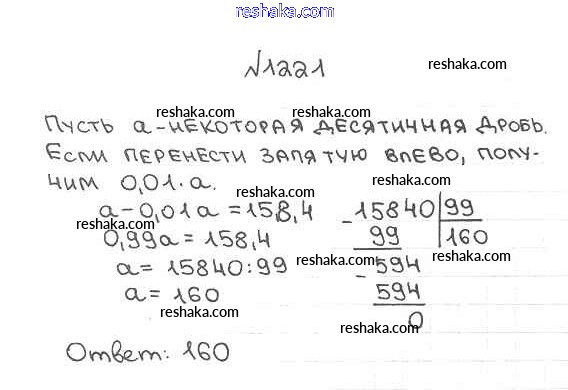 reshaka.com
№1221
reshaka.com
reshaka.com
reshaka.com
Пусть а-некоторая десятичная дробь.
Если перенести запятую влево, полу-
reshaka.com
reshaka.com
чим 0,01·а.
reshaka.com
а-0,01а=158,4
0,99а=158,4
а=15840:99
а=160
-15840|99
99 160
-594
594
0
reshaka.com
reshaka.com
reshaka.com
reshaka.com
reshaka.com
Ответ: 160